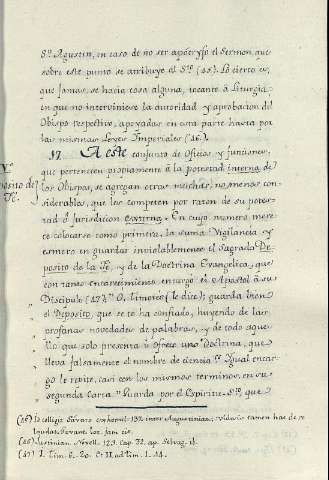 Sn. Agustin, en caso de no ser apócrypho el Sermon, que
sobre este punto se atribuye el Sto. (45). Lo cierto es,
que jamas se hacía cosa alguna, tocante á Liturgia
en que no interviniese la autoridad y aprobacion del
Obispo respectivo, apoyadas en esta parte hasta por
las mismas Leyes Imperiales (46).
17. A este conjunto de Oficios, y funciones,
que pertenecen propiamente á la potestad interna de
los Obispos, se agregan otras muchas, no menos con-
siderables, que les competen por razon de su potes-
tad ó Jurisdicion externa. En cuyo numero mere-
ce colocarse como primera, la suma Vigilancia y
esmero en guardar inviolablemente el Sagrado De-
posito de la Fe, y de la Doctrina Evangelica, que
con tanto encarecimiento encargó el Apostol á su
Discipulo (47). "O, Timoteo (le dice); guarda bien
" el Deposito, que se te ha confiado, huyendo de las
" profanas novedades de palabras, y de todo aque-
" llo que solo presenta ú ofrece una Doctrina, que
" lleva falsamente el nombre de ciencia". Igual encar-
go le repite, casi con los mismos terminos, en su
segunda Carta "Guarda por el Espiritu-Sto. que
posito de
Fe.
(46) Justinian. Novell. 123. Cap. 32. ap. Selvag. ib.
(47) I. Tim. 6. 20. et II. ad Tim. 1. 14.